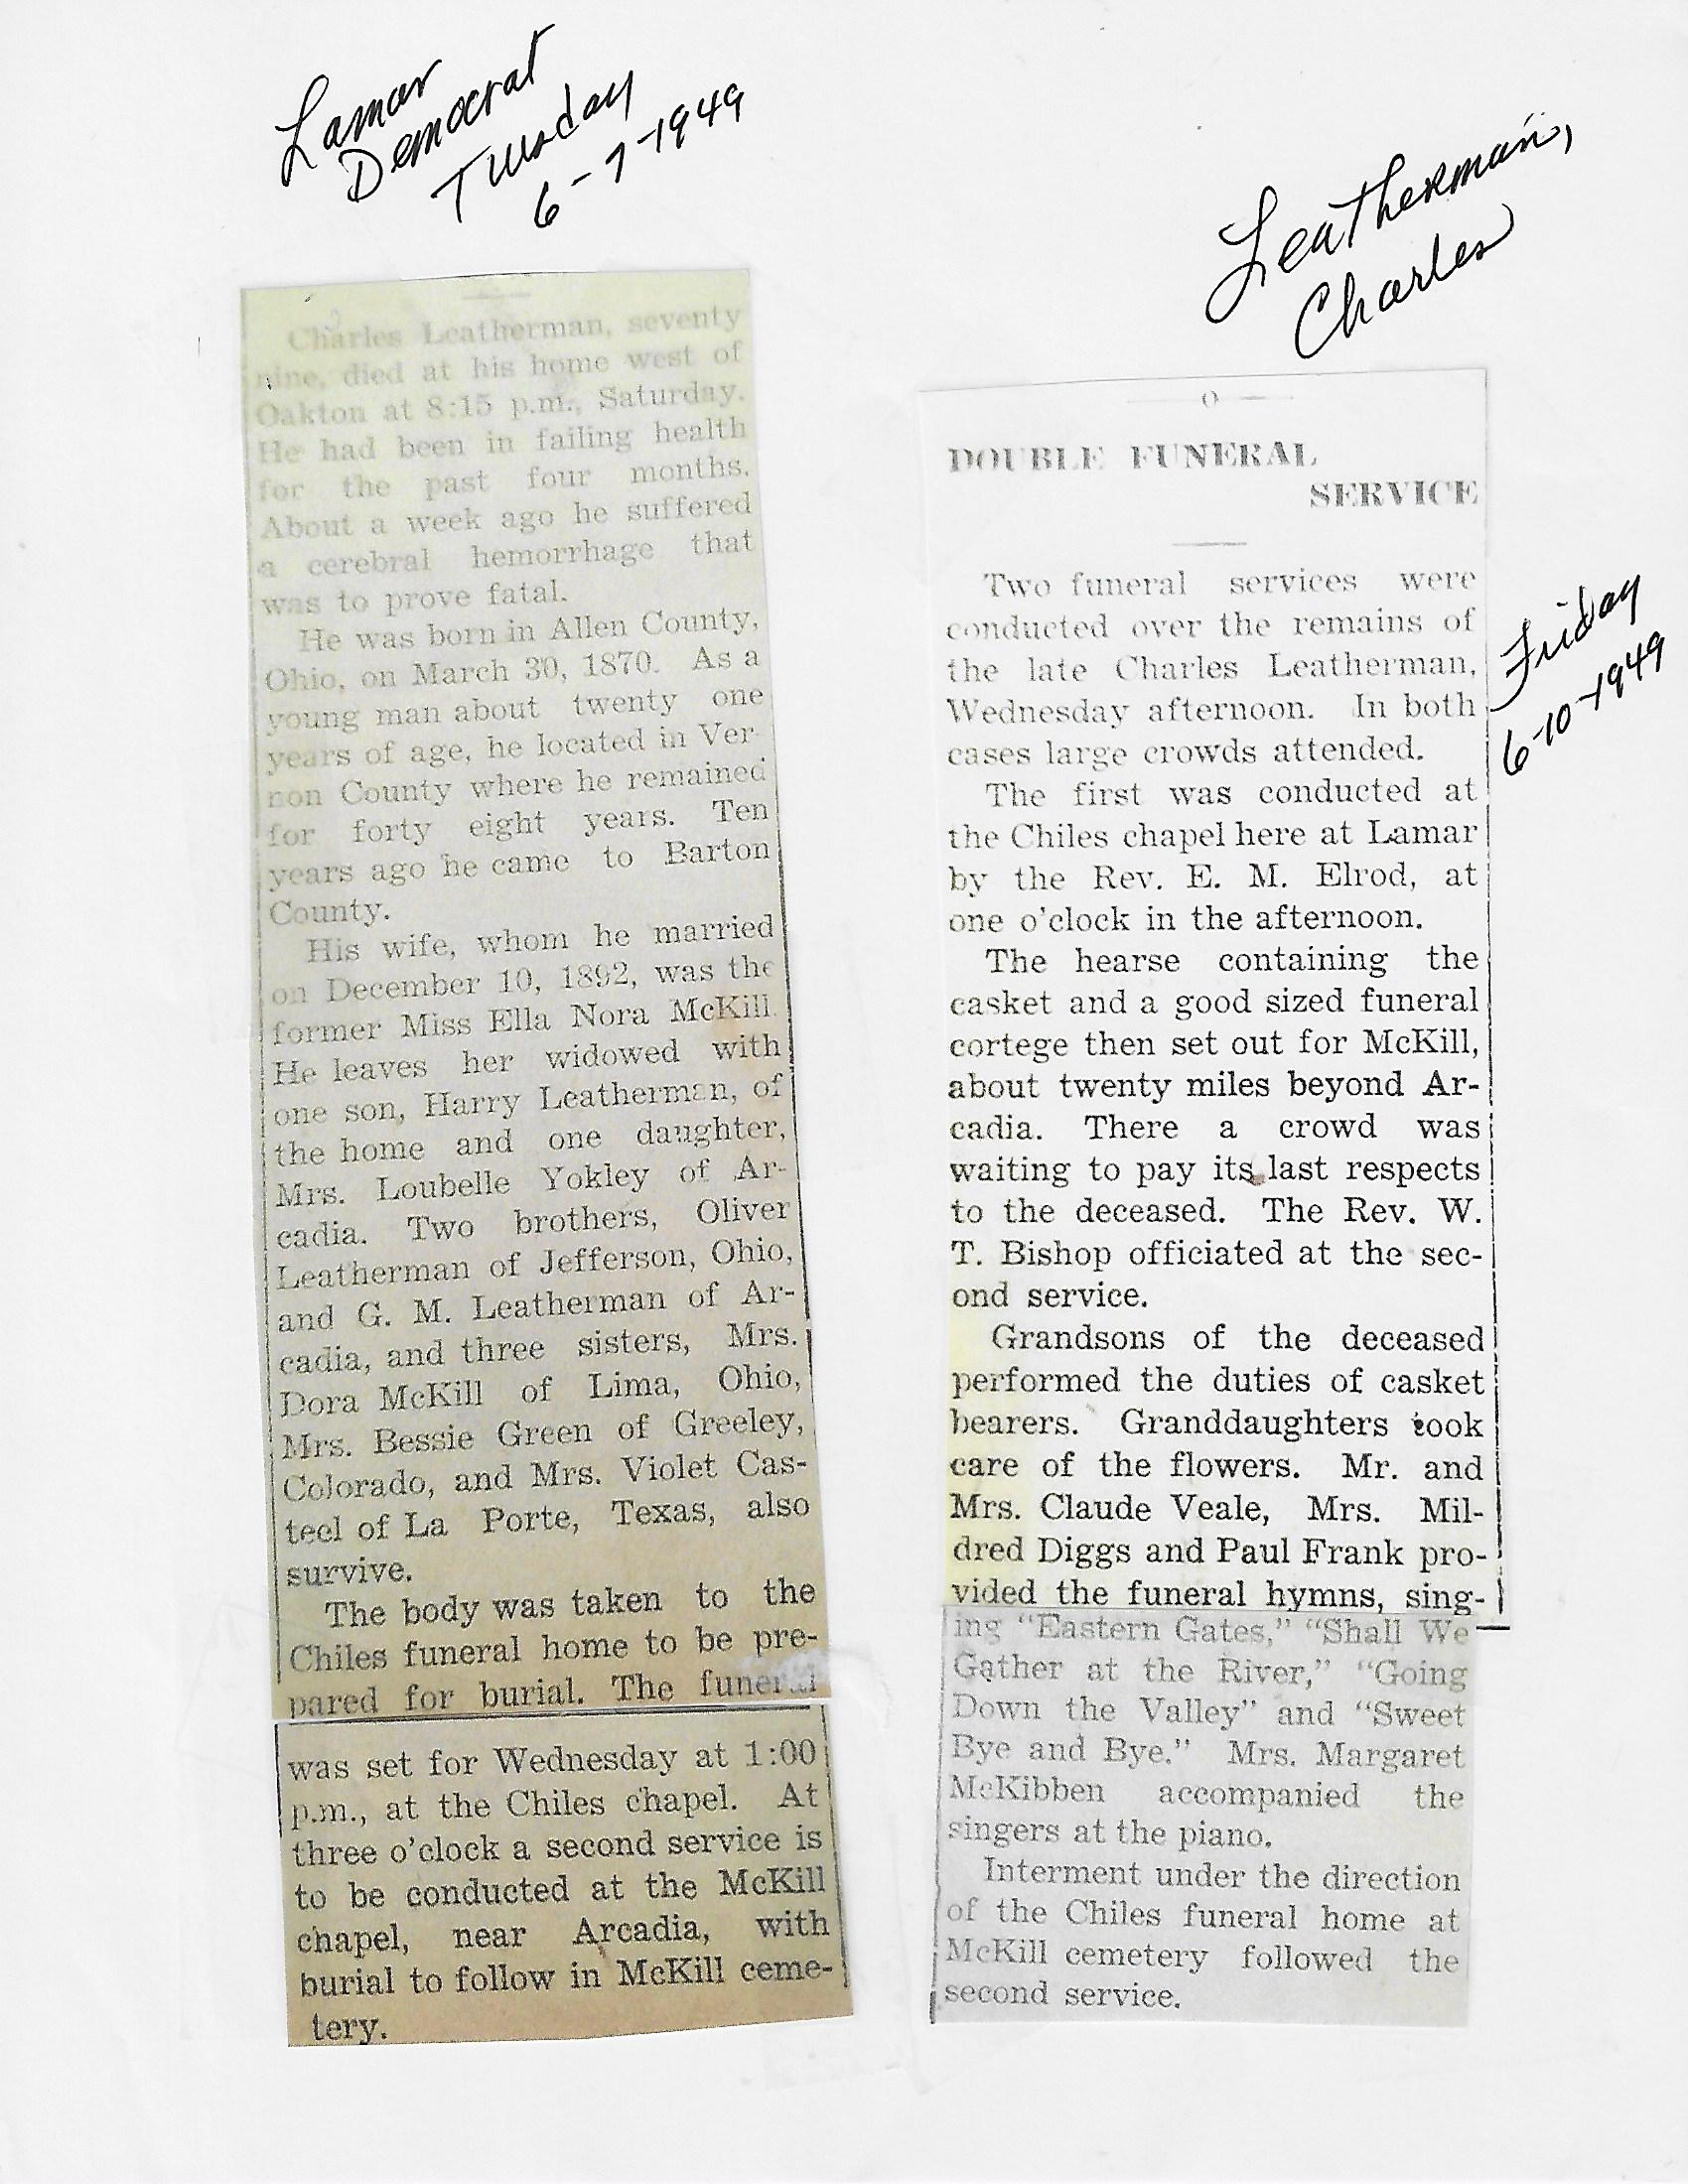 Lamar
Democrat
Tuesday
6-7-1949
Leatherman,
Charles
Charles Leatherman, seventy
nine, died at his home west of
Oakton at 8:15 p.m., Saturday.
He had been in failing health
for the past four months.
About a week ago he suffered
a cerebral hemorrhage that
was to prove fatal.
He was born in Allen County,
Ohio, on March 30, 1870. As a
young man about twenty one
years of age, he located in Ver-
non County where he remained
for forty eight years. Ten
years ago he came to Barton
County.
His wife, whom he married
on December 10, 1892, was the
former Miss Ella Nora McKill.
He leaves her widowed with
one son, Harry Leatherman, of
the home and one daughter,
Mrs. Loubelle Yokley of Ar-
cadia. Two brothers, Oliver
Leatherman of Jefferson, Ohio,
and G. M. Leatherman of Ar-
cadia, and three sisters, Mrs.
Dora McKill of Lima, Ohio,
Mrs. Bessie Green of Greeley,
Colorado, and Mrs. Violet Cas-
teel of La Porte, Texas, also
survive.
The body was taken to the
Chiles funeral home to be pre-
pared for burial. The funeral
was set for Wednesday at 1:00
p.m., at the Chiles chapel. At
three o'clock a second service is
to be conducted at the McKill
chapel, near Arcadia, with
burial to follow in McKill ceme-
tery.
O
DOUBLE FUNERAL
SERVICE
Two funeral services were
conducted over the remains of
the late Charles Leatherman,
Wednesday afternoon. In both
cases large crowds attended.
The first was conducted at
the Chiles chapel here at Lamar
by the Rev. E. M. Elrod, at
one o'clock in the afternoon.
The hearse containing the
casket and a good sized funeral
cortege then set out for McKill,
about twenty miles beyond Ar-
cadia. There a crowd was
waiting to pay its last respects
to the deceased. The Rev. W.
T. Bishop officiated at the sec-
ond service.
Grandsons of the deceased
performed the duties of casket
bearers. Granddaughters took
care of the flowers. Mr. and
Mrs. Claude Veale, Mrs. Mil-
dred Diggs and Paul Frank pro-
vided the funeral hymns, sing-
ing "Eastern Gates," "Shall We
Gather at the River," "Going
Down the Valley" and "Sweet
Bye and Bye." Mrs. Margaret
McKibben accompanied the
singers at the piano.
Interment under the direction
of the Chiles funeral home at
McKill cemetery followed the
second service.
Friday
6-10-1949